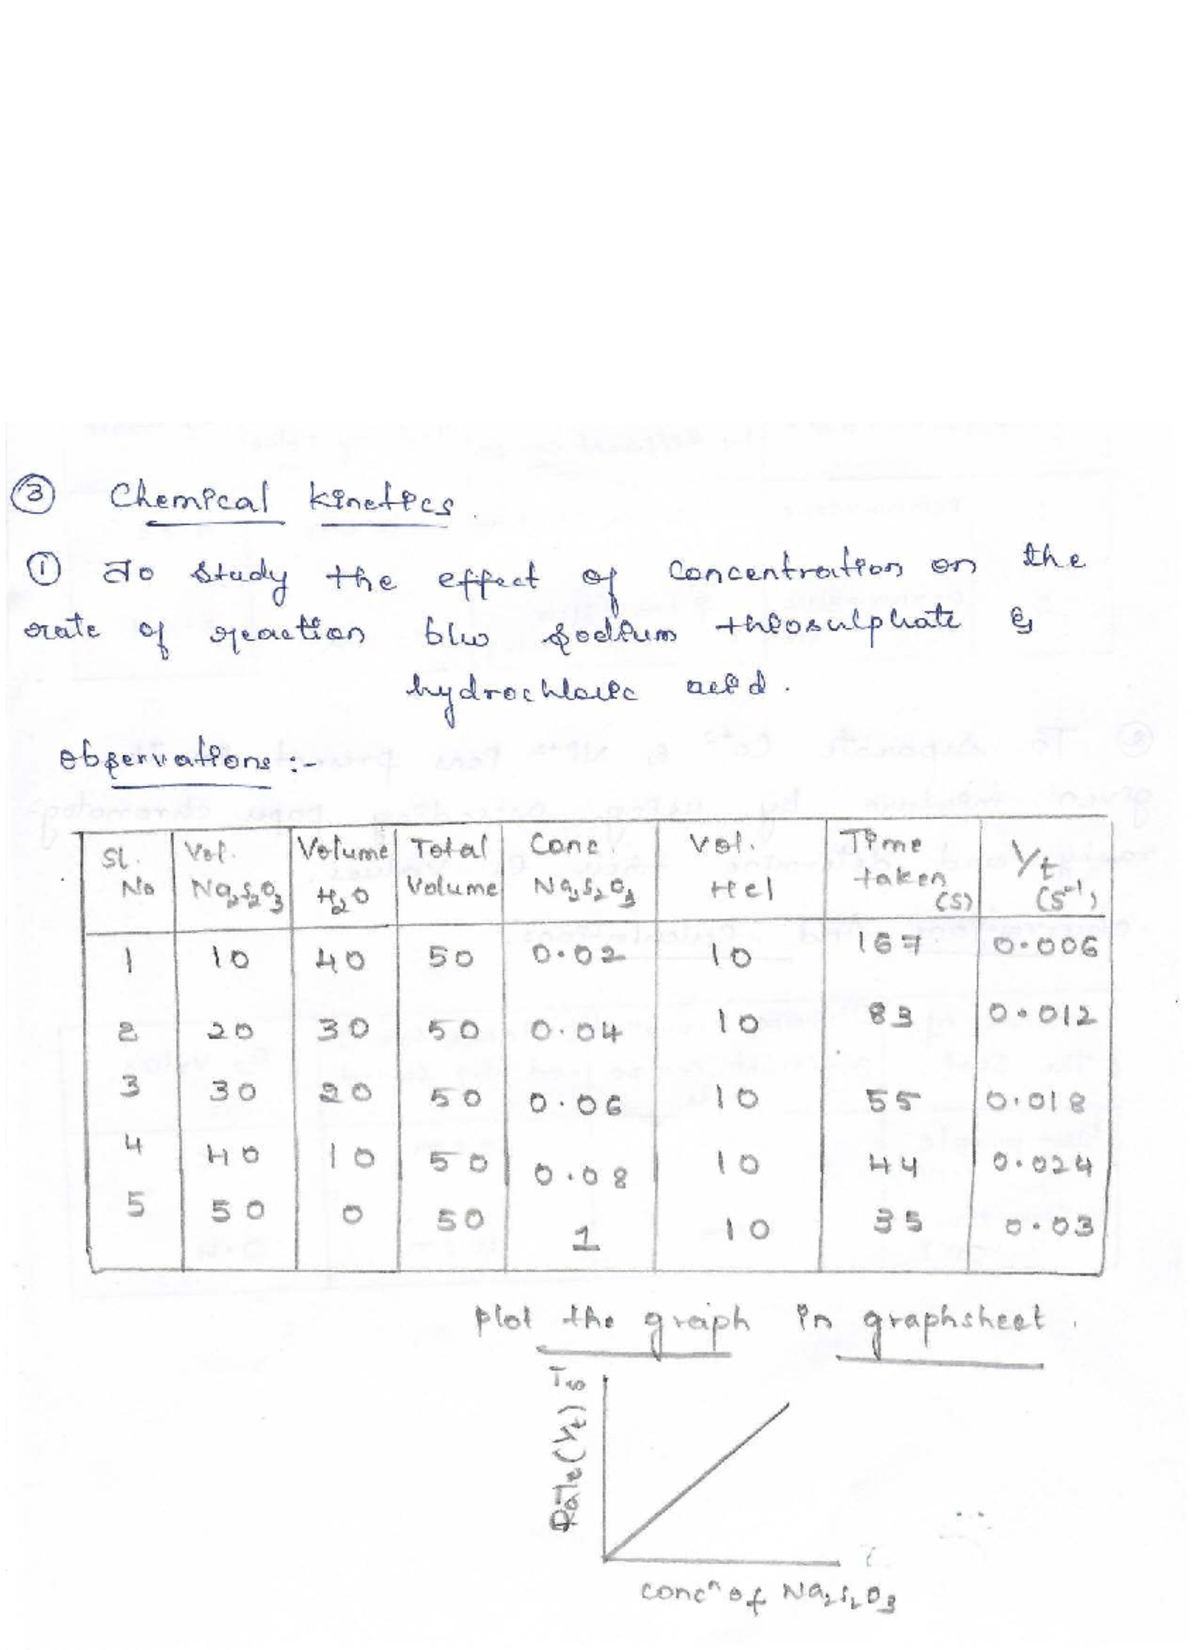 ③ Chemical kinetics.
① To study the effect of concentration on the
rate of reaction b/w sodium thiosulphate &
hydrochloric acid.
Observations :-
Sl. No | Vol. Na₂S₂O₃ | Volume H₂O | Total Volume | Conc. Na₂S₂O₃ | Vol. Hcl | Time taken (s) | 1/t (s⁻¹)
1 | 10 | 40 | 50 | 0.02 | 10 | 167 | 0.006
2 | 20 | 30 | 50 | 0.04 | 10 | 83 | 0.012
3 | 30 | 20 | 50 | 0.06 | 10 | 55 | 0.018
4 | 40 | 10 | 50 | 0.08 | 10 | 44 | 0.024
5 | 50 | 0 | 50 | 1 | 10 | 35 | 0.03
plot the graph in graphsheet.
Rate (1/t)
concⁿ of Na₂S₂O₃